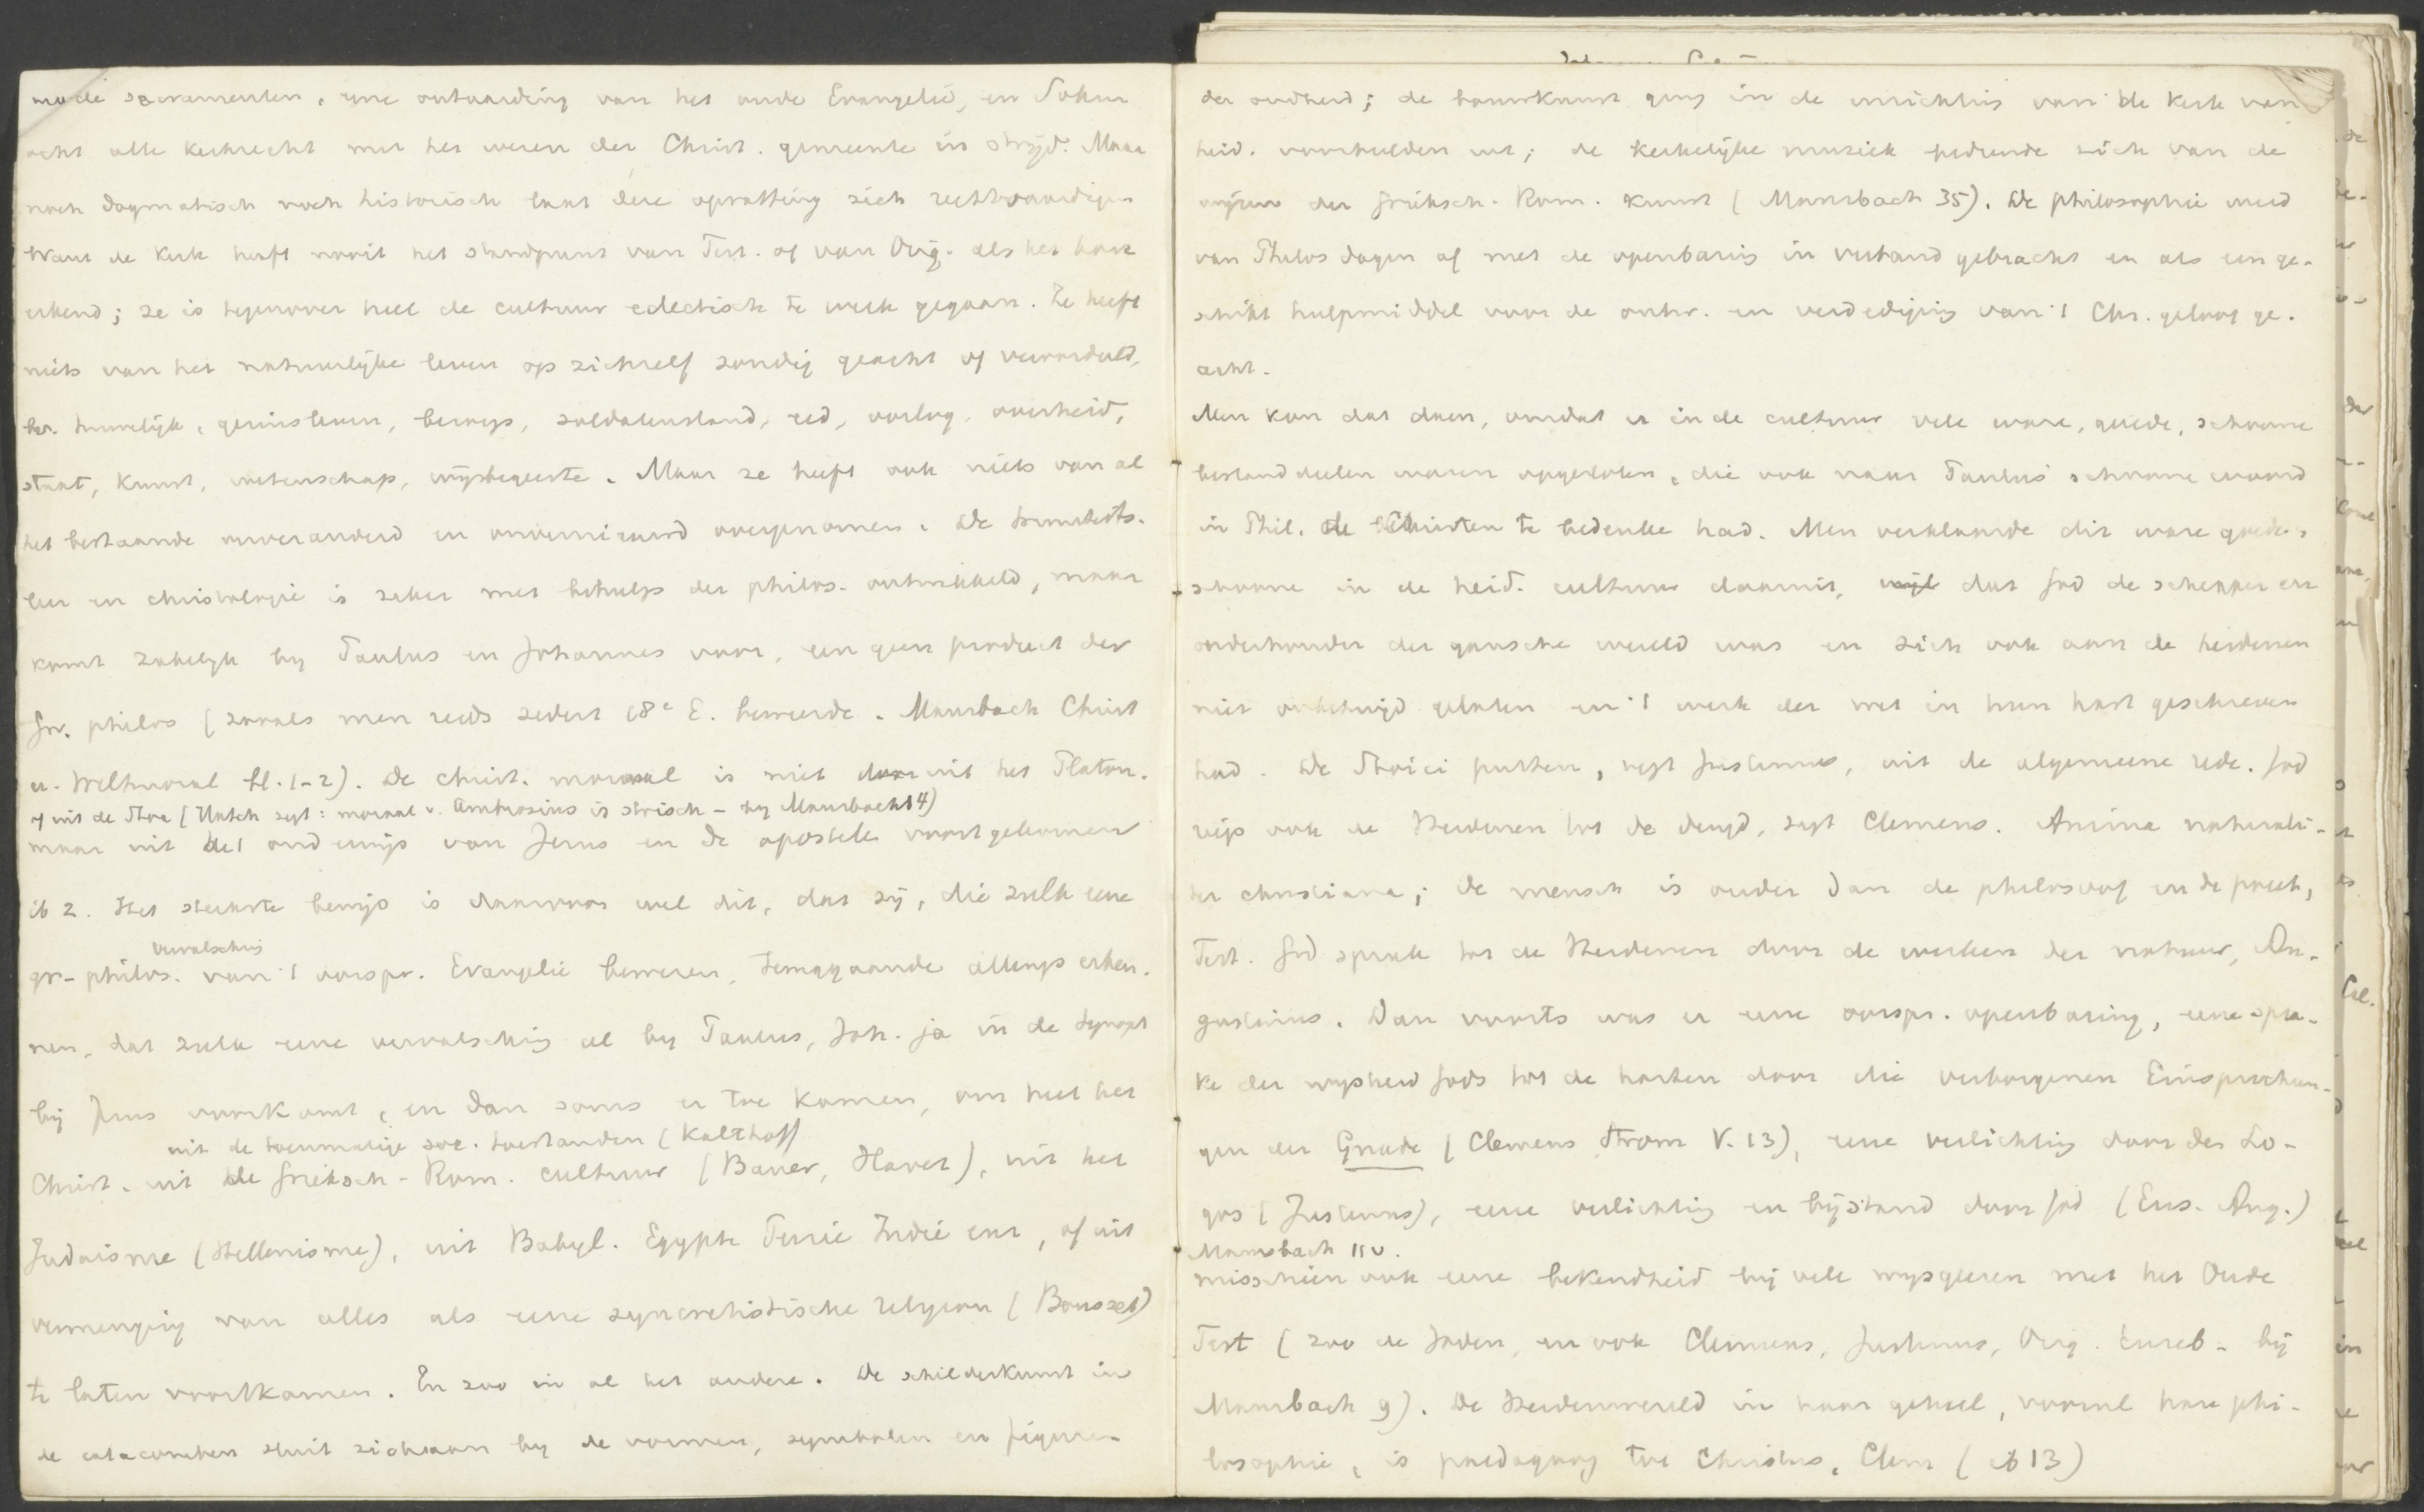 mede sacramenten, eene ontaarding van het oude Evangelie, en Sohm
acht alle kerkrecht met het wezen der Christ. gemeente in strijd. Maar
noch dogmatisch noch historisch laat deze opvatting zich rechtvaardigen
Want de kerk heeft nooit het standpunt van Tert. of van Orig. als het hare
erkend; ze is tegenover heel de cultuur eclectisch te werk gegaan. Ze heeft
niets van het natuurlijke leven op zichzelf zondig geacht of veroordeeld,
bv. huwelijk, gezinsleven, beroep, soldatenstand, eed, oorlog, overheid,
staat, kunst, wetenschap, wijsbegeerte. Maar ze heeft ook niets van al
het bestaande onveranderd en overgenomen. De triniteits-
leer en christologie is zeker met behulp der philos. ontwikkeld, maar
komt zakelijk by Paulus en Johannes voor, en geen product der
Gr. philos (zooals men reeds sedert 18e E. beweerde. Mausbach Christ
u. Weltmoral bl. 1-2). De christ. moraal is niet uit het Platon.
of uit de Stoa (Hatch zegt: moraal v. Ambrosius is stoisch - by Mausbach 14)
maar uit het onderwijs van Jezus en de apostelen voortgekomen
ib 2. Het sterkste bewijs is daarvoor wel dit, dat zij, die zulk eene
vervalsching
gr-philos. van 't oorspr. Evangelie beweren, teruggaande allengs erken-
nen, dat zulk eene vervalsching al by Paulus, Joh. ja in de Synopt
bij Jezus voorkomt, en dan soms er toe komen, om heel het
uit de toenmalige soc. toestanden (Kalthoff
Christ. uit de Grieksch-Rom. cultuur (Bauer, Havet), uit het
Judaisme (Hellenisme), uit Babyl. Egypte Perzie Indië enz, of uit
vermenging van alles als eene syncretistische religion (Bousset)
te laten voortkomen. En zoo in al het andere. De schilderkunst in
de catacomben sluit zich aan by de vormen, symbolen en figuren
der oudheid; de bouwkunst ging in de inrichting van de kerk van
heid. voorbeelden uit; de kerkelijke muziek bediende zich van de
wijzen der Grieksch-Rom. kunst (Mausbach 35). De philosophie werd
van Philos dagen af met de openbaring in verband gebracht en als een ge-
schikt hulpmiddel voor de ontw. en verdediging van 't Chr. geloof ge-
acht.
Men kon dat doen, omdat er in de cultuur vele ware, goede, schoone
bestanddeelen waren opgesloten, die ook naar Paulus' schoone woord
in Phil. de Christen te bedenken had. Men verklaarde dit ware goede,
schoone in de heid. cultuur daaruit, wijl dat God de schepper en
onderhouder der gansche wereld was en zich ook aan de heidenen
niet onbetuigd gelaten en 't werk der wet in hun hart geschreven
had. De Stoici putten, zegt Justinus, uit de algemeene rede. God
riep ook de Heidenen tot de deugd, zegt Clemens. Anima naturali-
ter christiana; de mensch is ouder dan de philosoof en de poeet,
Tert. God sprak tot de Heidenen door de werken der natuur, Au-
gustinus. Dan voorts was er eene oorspr. openbaring, eene spra-
ke der wijsheid Gods tot de harten door die verborgenen Einsprechun-
gen der Gnade (Clemens Strom V. 13), eene verlichting door den Lo-
gos (Justinus), eene verlichting en bijstand door God (Eus. Aug.)
Mausbach 11v.
misschien ook eene bekendheid bij vele wijsgeeren met het Oude
Test (zoo de Joden, en ook Clemens, Justinus, Orig. Euseb - bij
Mausbach 9). De Heidenwereld in haar geheel, vooral hare phi-
losophie, is paedagoog tot Christus, Clem (ib 13)